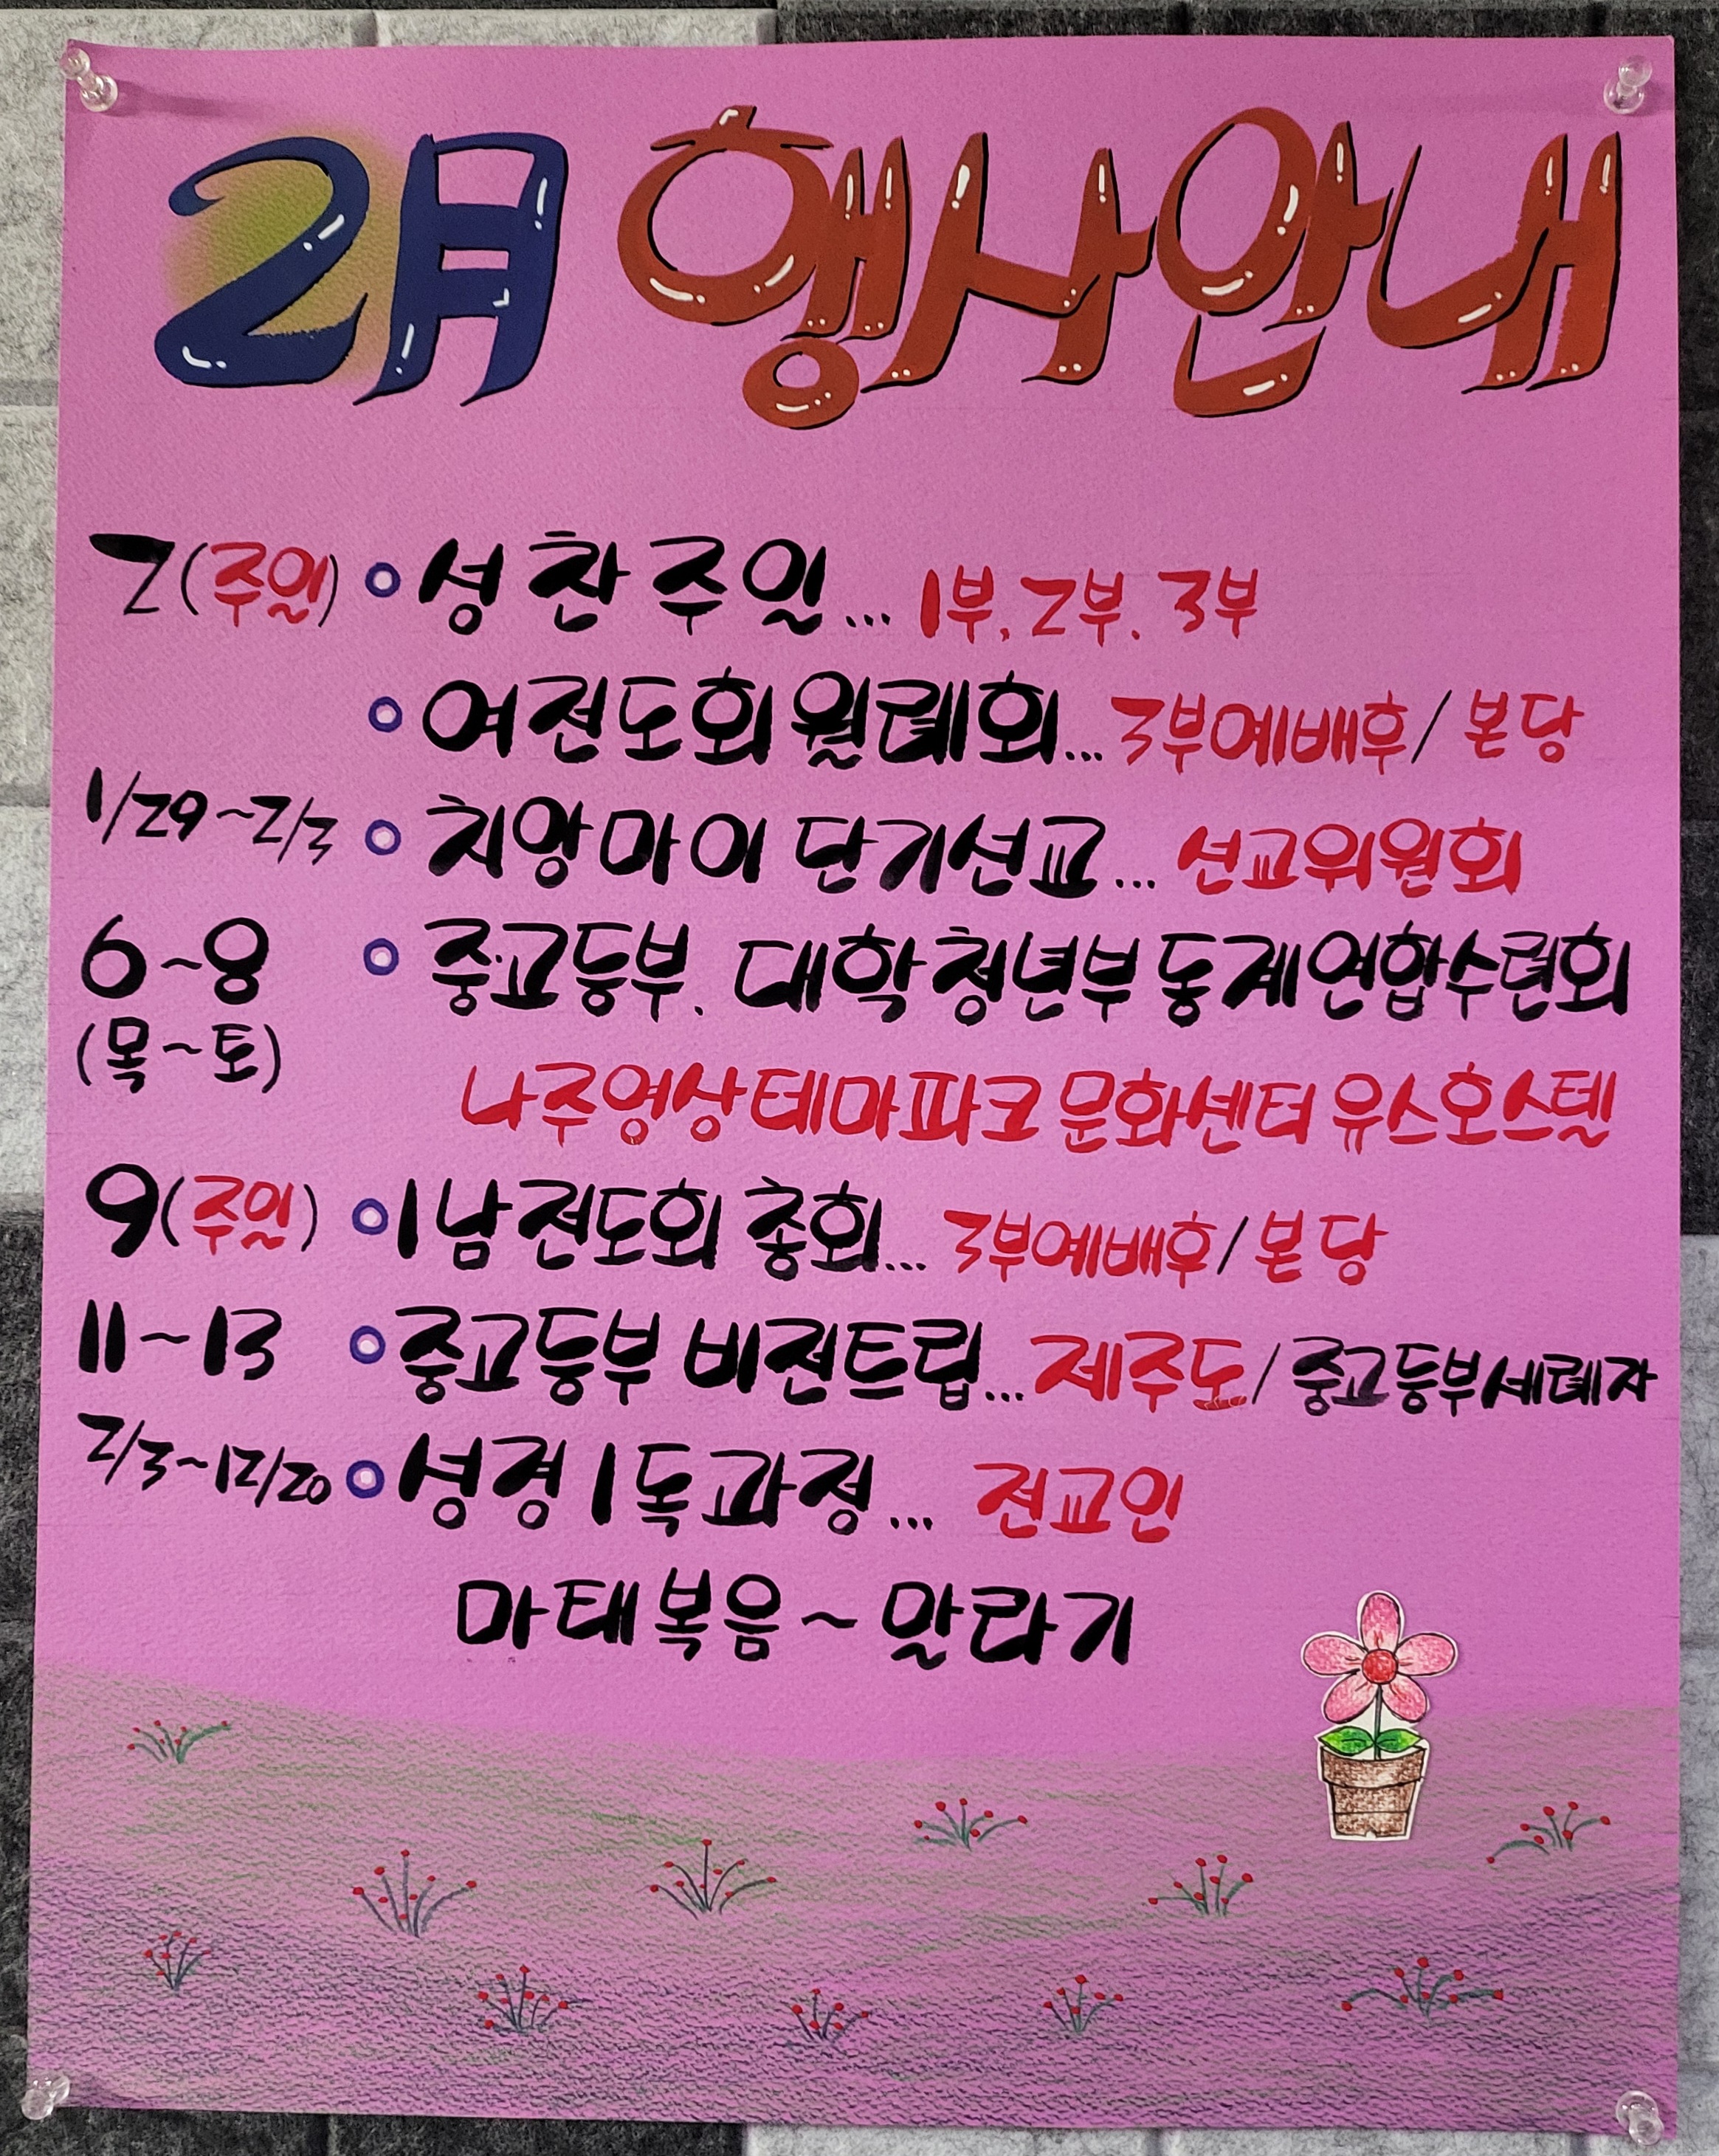 2月 행사안내
2(주일) ● 성찬주일... 1부. 2부. 3부
● 여전도회 월례회... 3부예배후/본당
1/29~2/3 ● 치앙마이 단기선교... 선교위원회
6~8 ● 중·고등부. 대학청년부 동계연합수련회
(목~토)
나주영상테마파크 문화센터 유스호스텔
9(주일) ● 1남전도회 총회... 3부예배후/본당
11~13 ● 중고등부 비전트립... 제주도/중고등부세례자
2/3~12/20 ● 성경1독과정... 전교인
마태복음~말라기